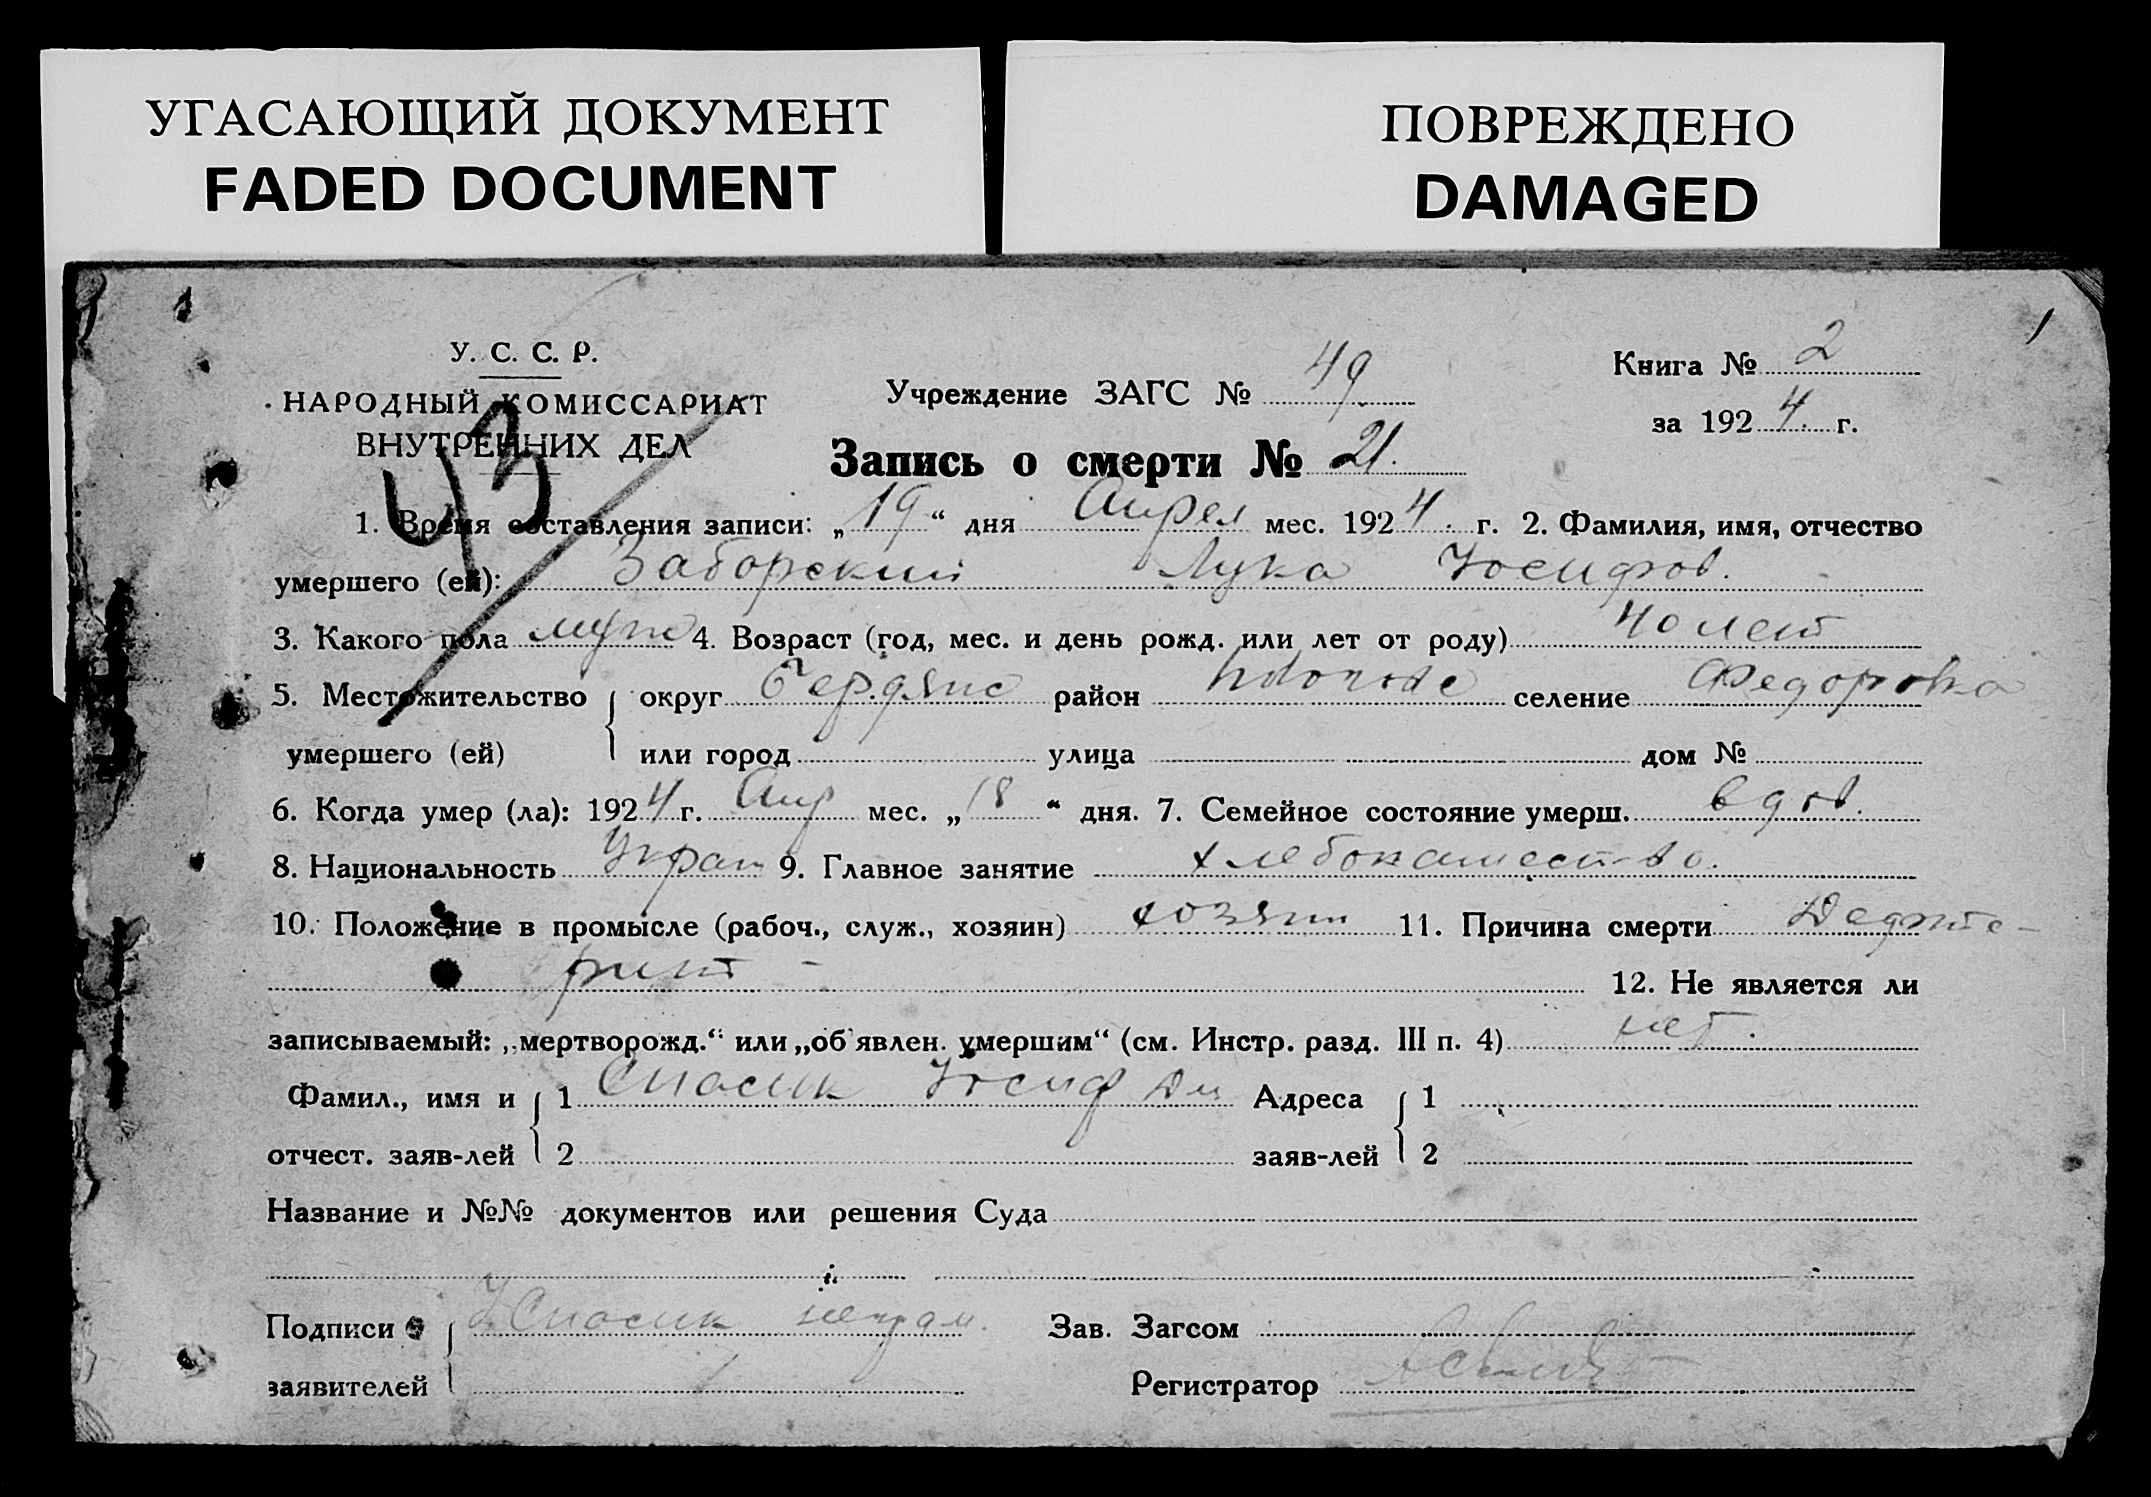 УГАСАЮЩИЙ ДОКУМЕНТ
FADED DOCUMENT
ПОВРЕЖДЕНО
DAMAGED
1
У. С. С. Р.
НАРОДНЫЙ КОМИССАРИАТ
ВНУТРЕННИХ ДЕЛ
43
Учреждение ЗАГС № 49
Книга № 2
за 1924 г.
Запись о смерти № 21.
1. Время составления записи: „19“ дня Апрел мес. 1924. г. 2. Фамилия, имя, отчество
умершего (ей): Заборский Лука Иосифов.
3. Какого пола муж 4. Возраст (год, мес. и день рожд. или лет от роду) 40 лет
5. Местожительство округ Бердянс район селение Федоровка
умершего (ей) или город улица дом №
6. Когда умер (ла): 1924 г. Апр мес. „18“ дня. 7. Семейное состояние умерш. вдов.
8. Национальность Украин 9. Главное занятие хлебопашество.
10. Положение в промысле (рабоч., служ., хозяин) хозяин 11. Причина смерти
12. Не является ли
записываемый: „мертворожд.“ или „об'явлен. умершим“ (см. Инстр. разд. III п. 4) нет.
Фамил., имя и 1 Спасик Иосиф Адреса 1
отчест. заяв-лей 2 заяв-лей 2
Название и №№ документов или решения Суда
Подписи Спасик неграм. Зав. Загсом
заявителей Регистратор